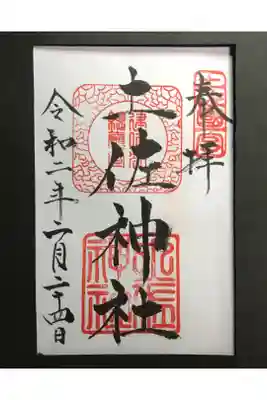 奉拝
土佐神社
令和二年二月二十四日